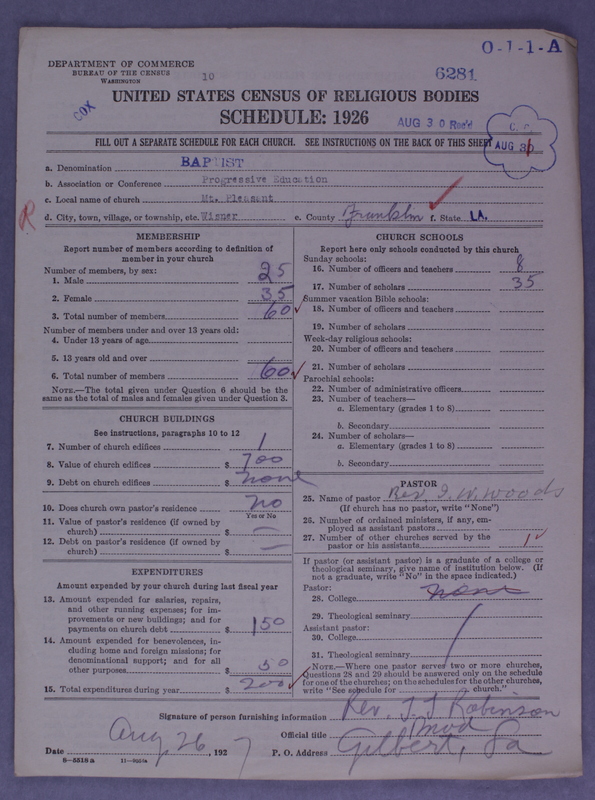 O-1-1-A
DEPARTMENT OF COMMERCE
BUREAU OF THE CENSUS
WASHINGTON
10
6281
COX
UNITED STATES CENSUS OF RELIGIOUS BODIES
SCHEDULE: 1926
AUG 30 Rec'd
AUG 30
FILL OUT A SEPARATE SCHEDULE FOR EACH CHURCH. SEE INSTRUCTIONS ON THE BACK OF THIS SHEET
a. Denomination BAPTIST
b. Association or Conference Progressive Education
c. Local name of church Mt. Pleasant
d. City, town, village, or township, etc. Wisner e. County Franklin f. State LA.
R
MEMBERSHIP
Report number of members according to definition of
member in your church
Number of members, by sex:
1. Male 25
2. Female 35
3. Total number of members 60
Number of members under and over 13 years old:
4. Under 13 years of age
5. 13 years old and over
6. Total number of members 60
NOTE.—The total given under Question 6 should be the
same as the total of males and females given under Question 3.
CHURCH BUILDINGS
See instructions, paragraphs 10 to 12
7. Number of church edifices 1
8. Value of church edifices $ 700
9. Debt on church edifices $ none
10. Does church own pastor's residence no
Yes or No
11. Value of pastor's residence (if owned by
church) $ —
12. Debt on pastor's residence (if owned by
church) $ —
EXPENDITURES
Amount expended by your church during last fiscal year
13. Amount expended for salaries, repairs,
and other running expenses; for im-
provements or new buildings; and for
payments on church debt $ 150
14. Amount expended for benevolences, in-
cluding home and foreign missions; for
denominational support; and for all
other purposes $ 50
15. Total expenditures during year $ 200
CHURCH SCHOOLS
Report here only schools conducted by this church
Sunday schools:
16. Number of officers and teachers 8
17. Number of scholars 35
Summer vacation Bible schools:
18. Number of officers and teachers
19. Number of scholars
Week-day religious schools:
20. Number of officers and teachers
21. Number of scholars
Parochial schools:
22. Number of administrative officers
23. Number of teachers—
a. Elementary (grades 1 to 8)
b. Secondary
24. Number of scholars—
a. Elementary (grades 1 to 8)
b. Secondary
PASTOR
25. Name of pastor Rev. I. W. Woods
(If church has no pastor, write "None")
26. Number of ordained ministers, if any, em-
ployed as assistant pastors
27. Number of other churches served by the
pastor or his assistants 1
If pastor (or assistant pastor) is a graduate of a college or
theological seminary, give name of institution below. (If
not a graduate, write "No" in the space indicated.)
Pastor:
28. College none
29. Theological seminary
Assistant pastor:
30. College
31. Theological seminary
NOTE.—Where one pastor serves two or more churches,
Questions 28 and 29 should be answered only on the schedule
for one of the churches; on the schedules for the other churches,
write "See schedule for church."
Signature of person furnishing information Rev. J. J. Robinson
Official title Mod
Date Aug 26, 1927 P. O. Address Gilbert, La
8—5518 a